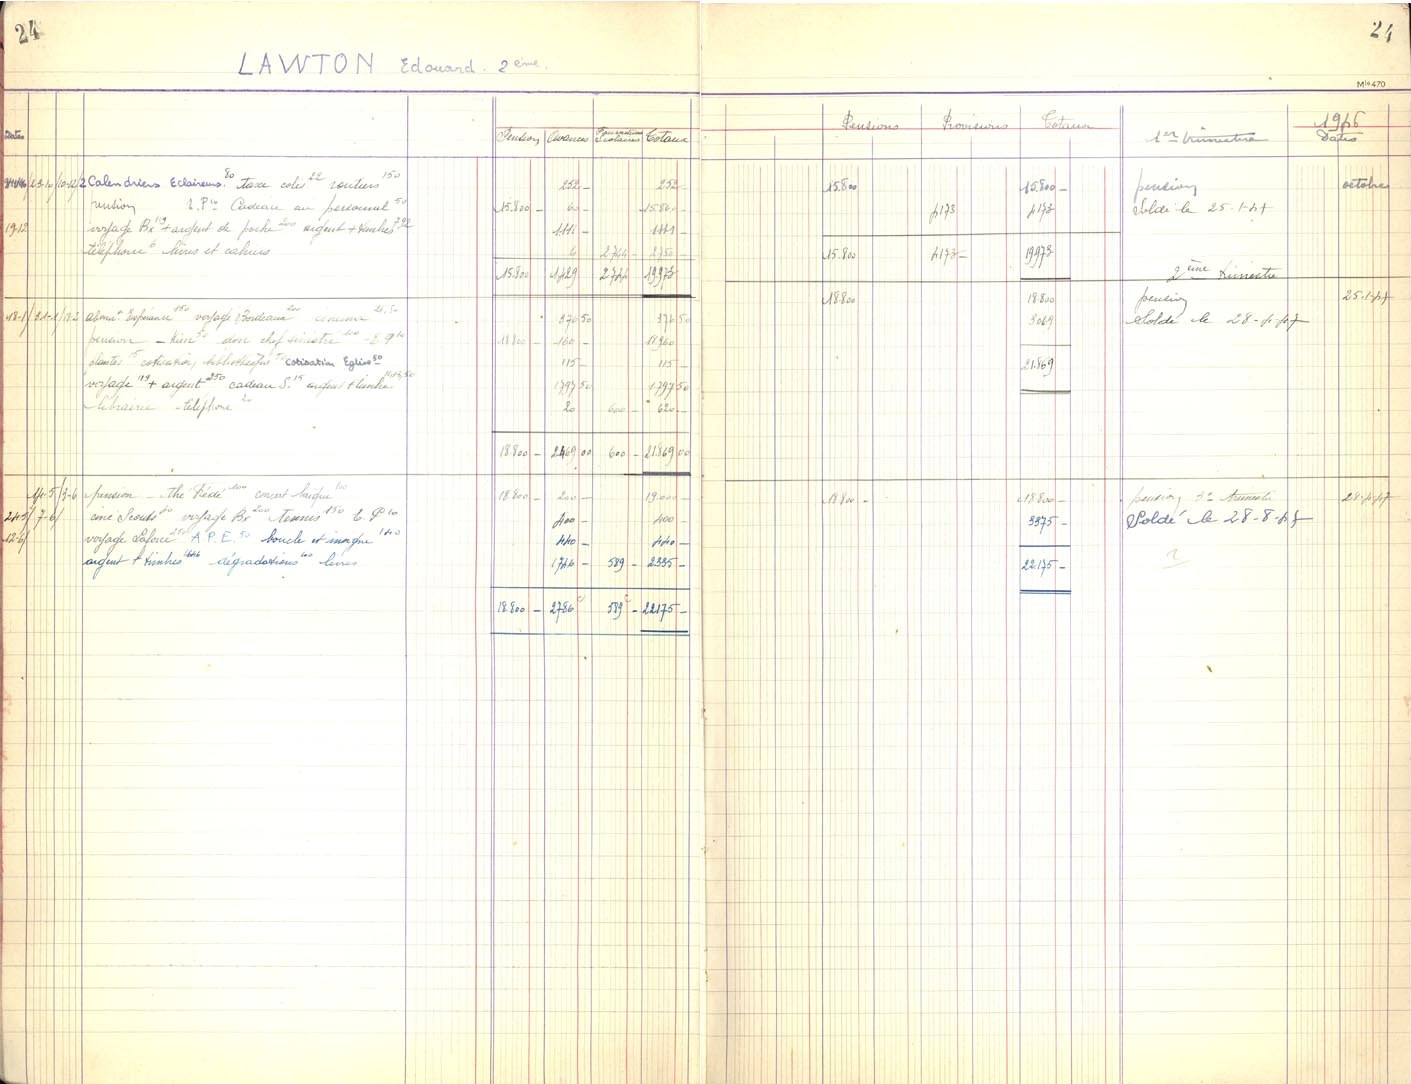 24
LAWTON Edouard. 2ème.
Dates Pension Avances Fournitures Scolaires Totaux
23-10 10-12 2 Calendriers Eclaireurs 80 taxe colis 22 routiers 150 252 - 252 -
pension E.P 10 Cadeau au personnel 50 15.800 - 60 - 15.860 -
19-12 voyage Bx 119 + argent de poche 200 argent + timbres 792 1111 - 1111 -
téléphone 6 livres et cahiers 6 2744 - 2750 -
15.800 1429 2744 19.973
18-1 21-1 18-2 abonnt Espérance 150 voyage Bordeaux 200 cinéma 26,50 376 50 376 50
pension - don chef sinistré 100 - E.P 10 18.800 - 160 - 18.960
plantes 15 cotisation bibliothèque cotisation Eglise 50 115 - 115 -
voyage 119 + argent 250 cadeau S. 15 argent + timbre 1413,50 1797 50 1797 50
librairie - téléphone 20 20 600 - 620 -
18.800 - 2469 00 600 - 21.869 00
14-5 3-6 pension - thé Fédé 100 concert laïque 100 18.800 - 200 - 19.000 -
24-5 7-6 ciné Scouts 40 voyage Bx 200 Tennis 150 E.P 10 400 - 400 -
12-6 voyage Laforce 250 A.P.E. 50 boucle et insigne 140 440 - 440 -
argent + timbres 1646 dégradations 100 livres 1746 - 589 - 2335 -
18.800 - 2786 589 - 22.175 -
24
Mle 470
Pensions Provisions Totaux 1er trimestre 1946 Dates
15.800 15.800 - pension octobre
4173 4173 Soldé le 25-1-47
15.800 4173 - 19.973
2ème trimestre
18.800 18.800 pension 25-1-47
3069 Soldé le 28-4-47
21.869
18.800 - 18.800 - pension 3e trimestre 28-4-47
3375 - Soldé le 28-8-47
22.175 -